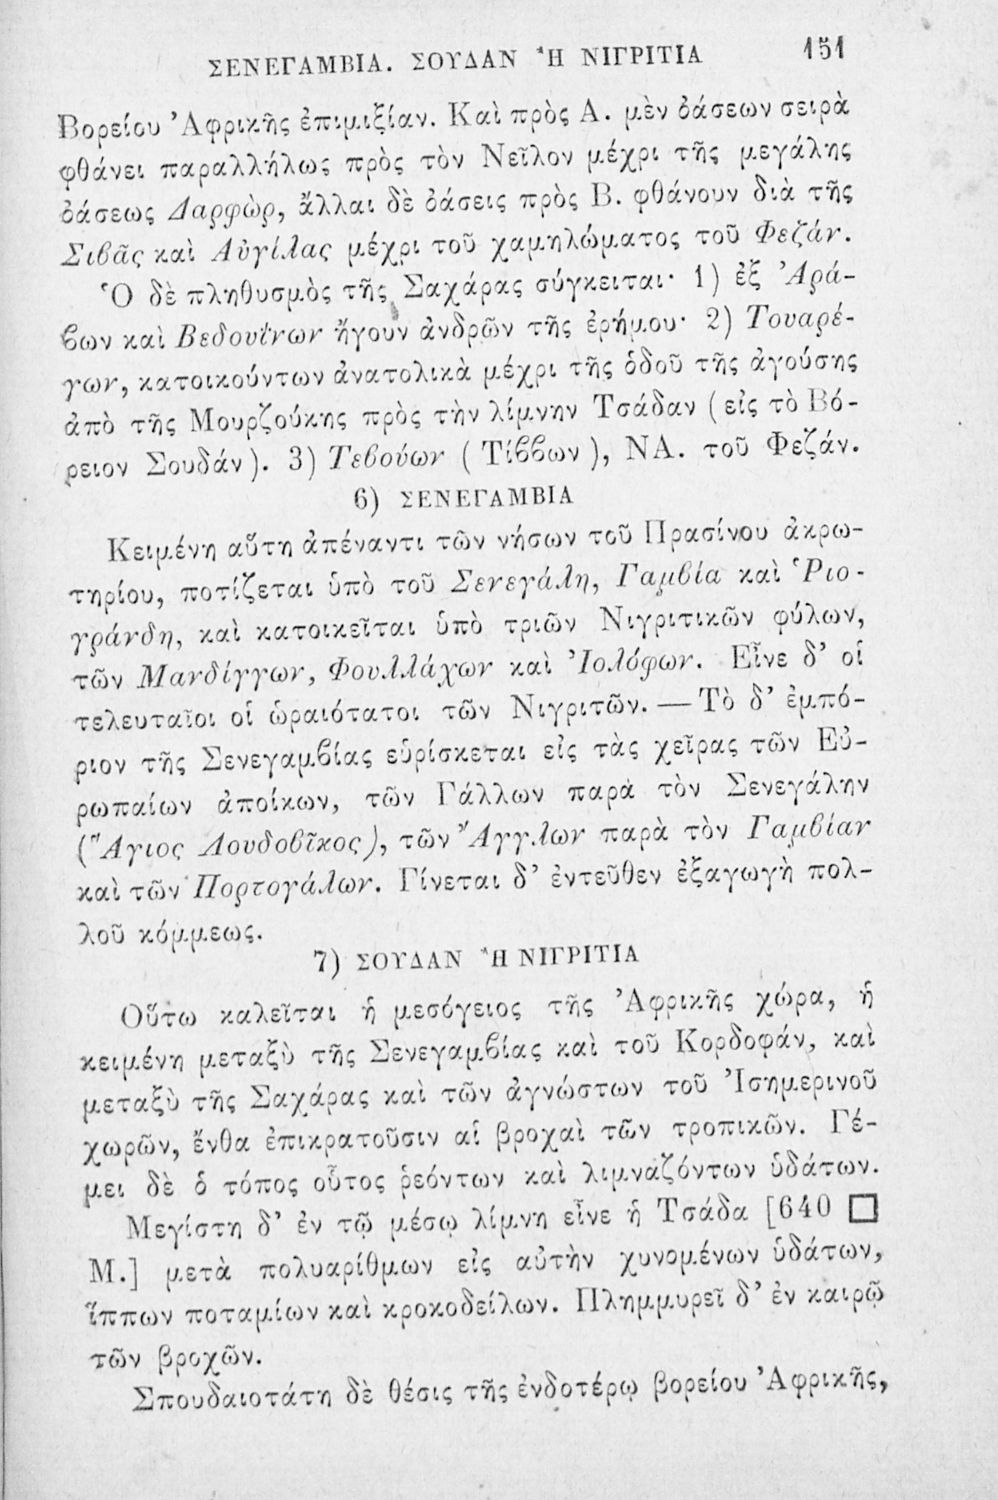 ΣΕΝΕΓΑΜΒΙΑ. ΣΟΥΔΑΝ Ἢ ΝΙΓΡΙΤΙΑ 151
Βορείου Ἀφρικῆς ἐπιμιξίαν. Καὶ πρὸς Α. μὲν ὀάσεων σειρὰ
φθάνει παραλλήλως πρὸς τὸν Νεῖλον μέχρι τῆς μεγάλης
ὀάσεως Δαρφὼρ, ἄλλαι δὲ ὀάσεις πρὸς Β. φθάνουν διὰ τῆς
Σιβᾶς καὶ Αὐγίλας μέχρι τοῦ χαμηλώματος τοῦ Φεζάν.
Ὁ δὲ πληθυσμὸς τῆς Σαχάρας σύγκειται· 1) ἐξ Ἀρά-
βων καὶ Βεδουΐνων ἤγουν ἀνδρῶν τῆς ἐρήμου· 2) Τουαρέ-
γων, κατοικούντων ἀνατολικὰ μέχρι τῆς ὁδοῦ τῆς ἀγούσης
ἀπὸ τῆς Μουρζούκης πρὸς τὴν λίμνην Τσάδαν (εἰς τὸ Βό-
ρειον Σουδάν). 3) Τεβούων (Τίββων), ΝΑ. τοῦ Φεζάν.
6) ΣΕΝΕΓΑΜΒΙΑ
Κειμένη αὕτη ἀπέναντι τῶν νήσων τοῦ Πρασίνου ἀκρω-
τηρίου, ποτίζεται ὑπὸ τοῦ Σενεγάλη, Γαμβία καὶ Ῥιο-
γράνδη, καὶ κατοικεῖται ὑπὸ τριῶν Νιγριτικῶν φύλων,
τῶν Μανδίγγων, Φουλλάχων καὶ Ἰολόφων. Εἶνε δ’ οἱ
τελευταῖοι οἱ ὡραιότατοι τῶν Νιγριτῶν. — Τὸ δ’ ἐμπό-
ριον τῆς Σενεγαμβίας εὑρίσκεται εἰς τὰς χεῖρας τῶν Εὐ-
ρωπαίων ἀποίκων, τῶν Γάλλων παρὰ τὸν Σενεγάλην
(Ἅγιος Λουδοβῖκος), τῶν Ἄγγλων παρὰ τὸν Γαμβίαν
καὶ τῶν Πορτογάλων. Γίνεται δ’ ἐντεῦθεν ἐξαγωγὴ πολ-
λοῦ κόμμεως.
7) ΣΟΥΔΑΝ Ἢ ΝΙΓΡΙΤΙΑ
Οὕτω καλεῖται ἡ μεσόγειος τῆς Ἀφρικῆς χώρα, ἡ
κειμένη μεταξὺ τῆς Σενεγαμβίας καὶ τοῦ Κορδοφάν, καὶ
μεταξὺ τῆς Σαχάρας καὶ τῶν ἀγνώστων τοῦ Ἰσημερινοῦ
χωρῶν, ἔνθα ἐπικρατοῦσιν αἱ βροχαὶ τῶν τροπικῶν. Γέ-
μει δὲ ὁ τόπος οὗτος ῥεόντων καὶ λιμναζόντων ὑδάτων.
Μεγίστη δ’ ἐν τῷ μέσῳ λίμνη εἶνε ἡ Τσάδα [640 □
Μ.] μετὰ πολυαρίθμων εἰς αὐτὴν χυνομένων ὑδάτων,
ἵππων ποταμίων καὶ κροκοδείλων. Πλημμυρεῖ δ’ ἐν καιρῷ
τῶν βροχῶν.
Σπουδαιοτάτη δὲ θέσις τῆς ἐνδοτέρῳ βορείου Ἀφρικῆς,